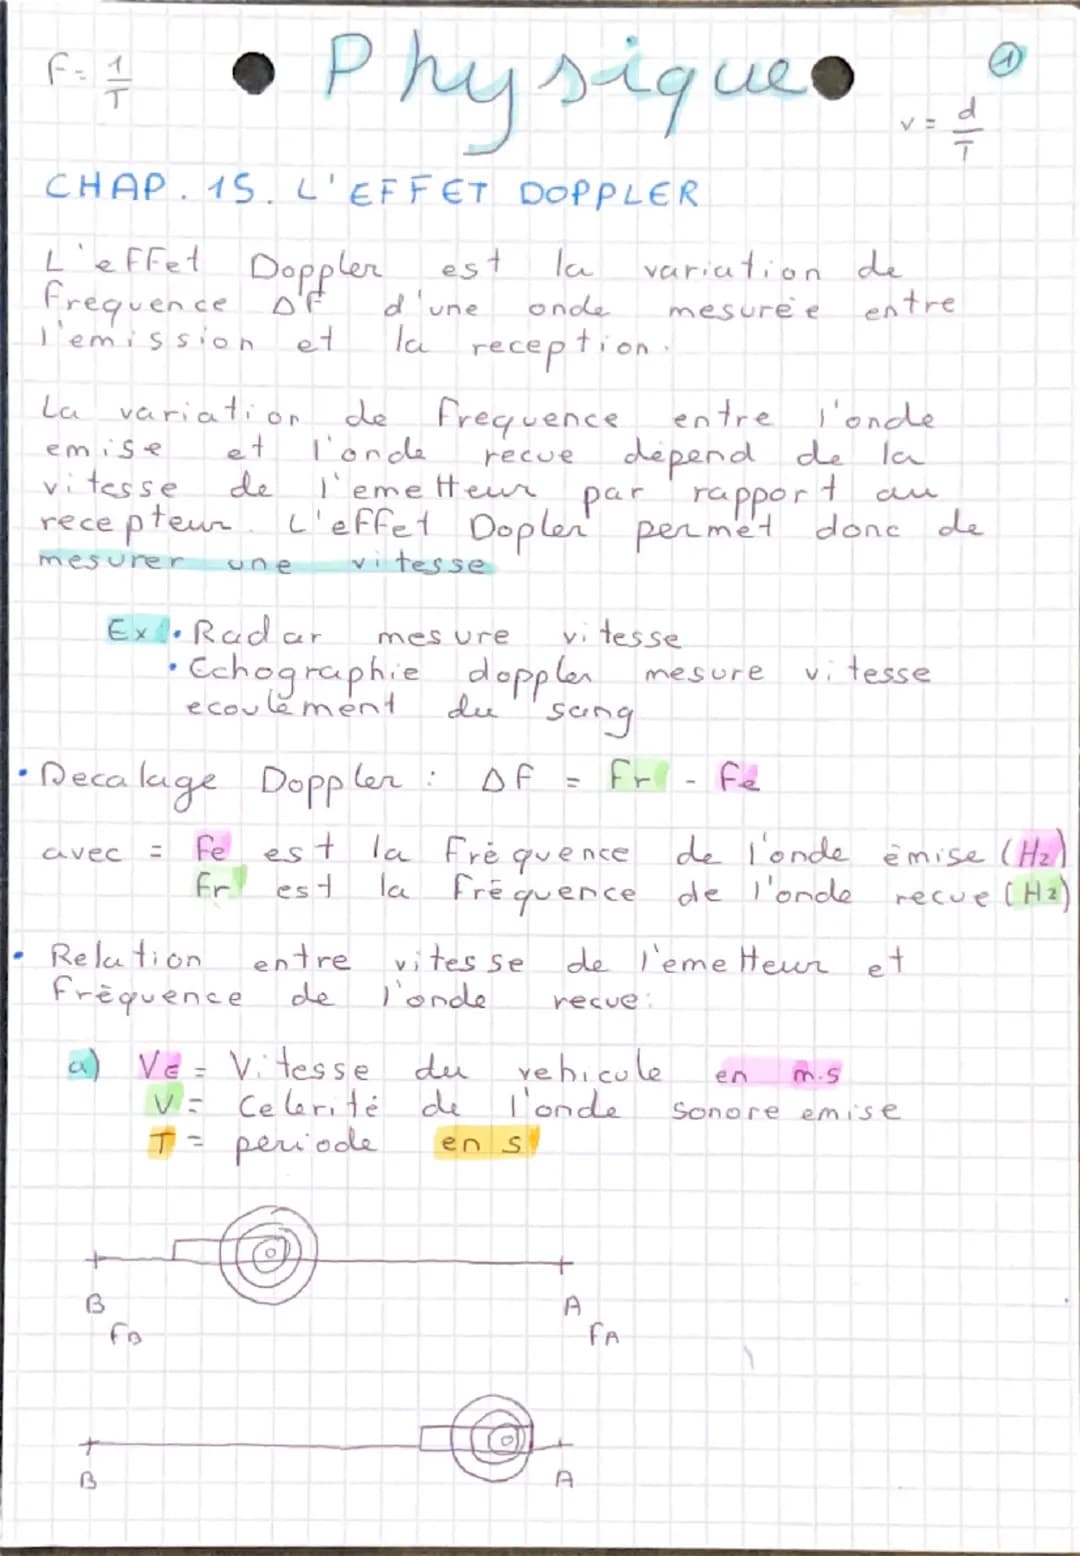 F = 1/T
• Physique •
①
v = d/T
CHAP. 15. L'EFFET DOPPLER
L'effet Doppler est la variation de
frequence ΔF d'une onde mesurée entre
l'emission et la reception.
La variation de frequence entre l'onde
emise et l'onde recue dépend de la
vitesse de l'emetteur par rapport au
recepteur. L'effet Dopler permet donc de
mesurer une vitesse
Ex • Radar mesure vitesse
• Echographie doppler mesure vitesse
ecoulement du sang
• Decalage Doppler : ΔF = Fr - Fe
avec = Fe est la fréquence de l'onde émise (Hz)
Fr est la fréquence de l'onde recue (Hz)
• Relation entre vitesse de l'emetteur et
fréquence de l'onde recue:
a) VE = Vitesse du vehicule en m.s
V = Celerité de l'onde sonore emise
T = periode en s
B A
FB FA
B A